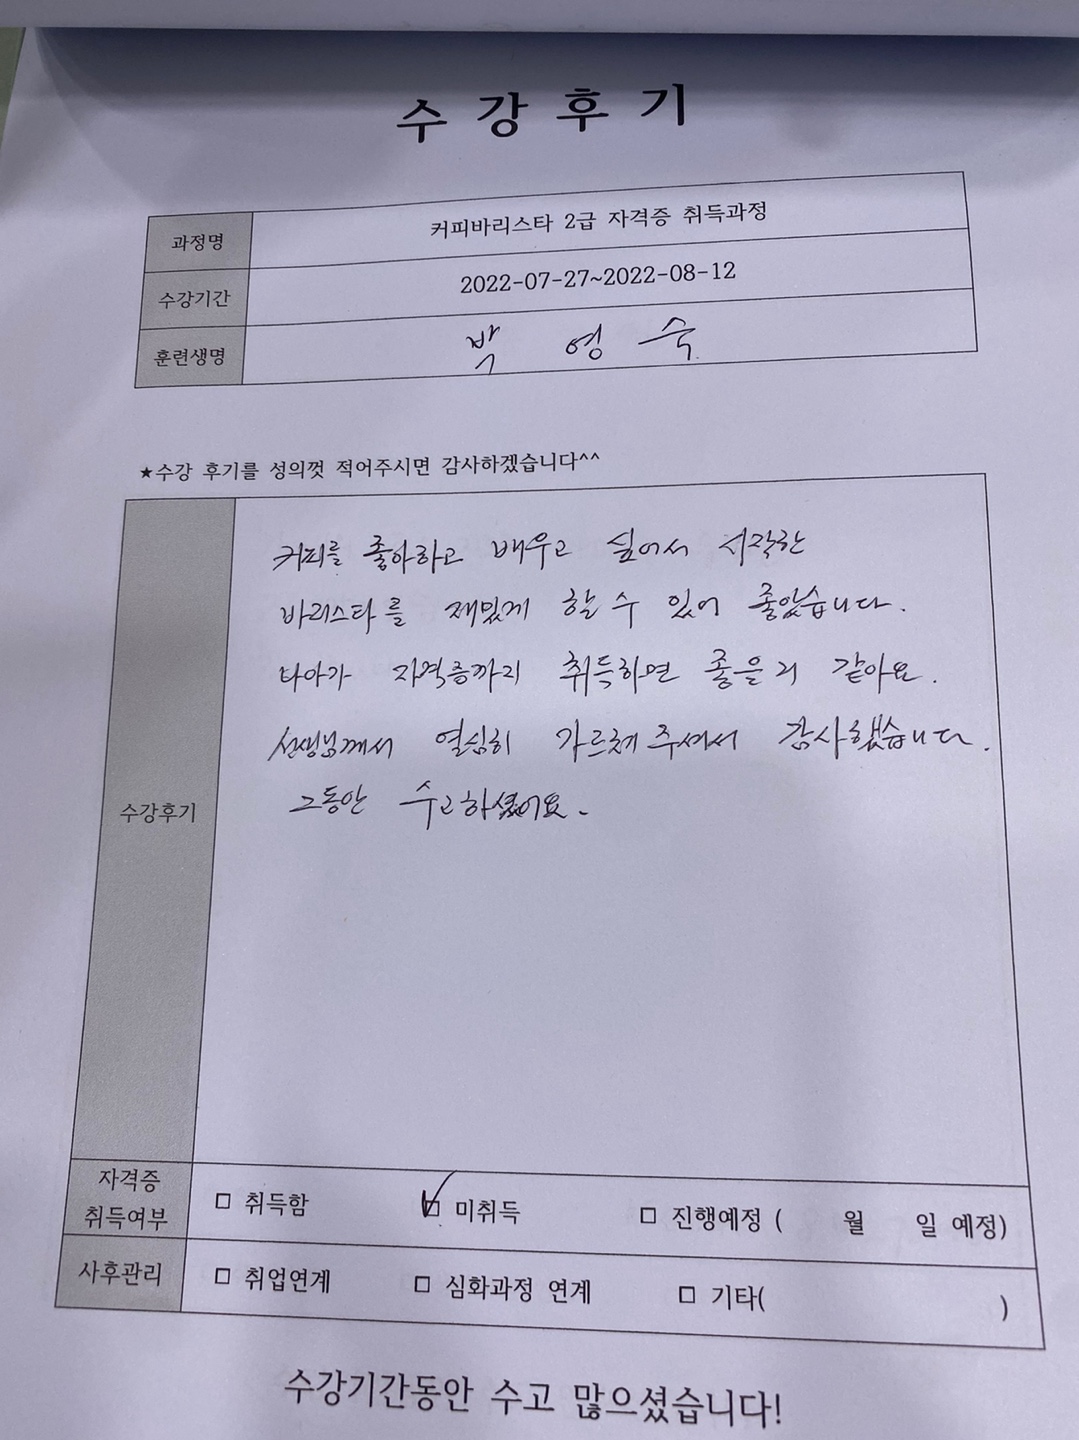 수 강 후 기
과정명 커피바리스타 2급 자격증 취득과정
수강기간 2022-07-27~2022-08-12
훈련생명 박 영 숙
★수강 후기를 성의껏 적어주시면 감사하겠습니다^^
수강후기
커피를 좋아하고 배우고 싶어서 시작한
바리스타를 재밌게 할 수 있어 좋았습니다.
자격증까지 취득하면 좋을거 같아요.
선생님께서 열심히 가르체 주셔서 감사했습니다.
그동안 수고하셨어요.
자격증 취득여부 □ 취득함 ☑ 미취득 □ 진행예정 ( 월 일 예정)
사후관리 □ 취업연계 □ 심화과정 연계 □ 기타( )
수강기간동안 수고 많으셨습니다!